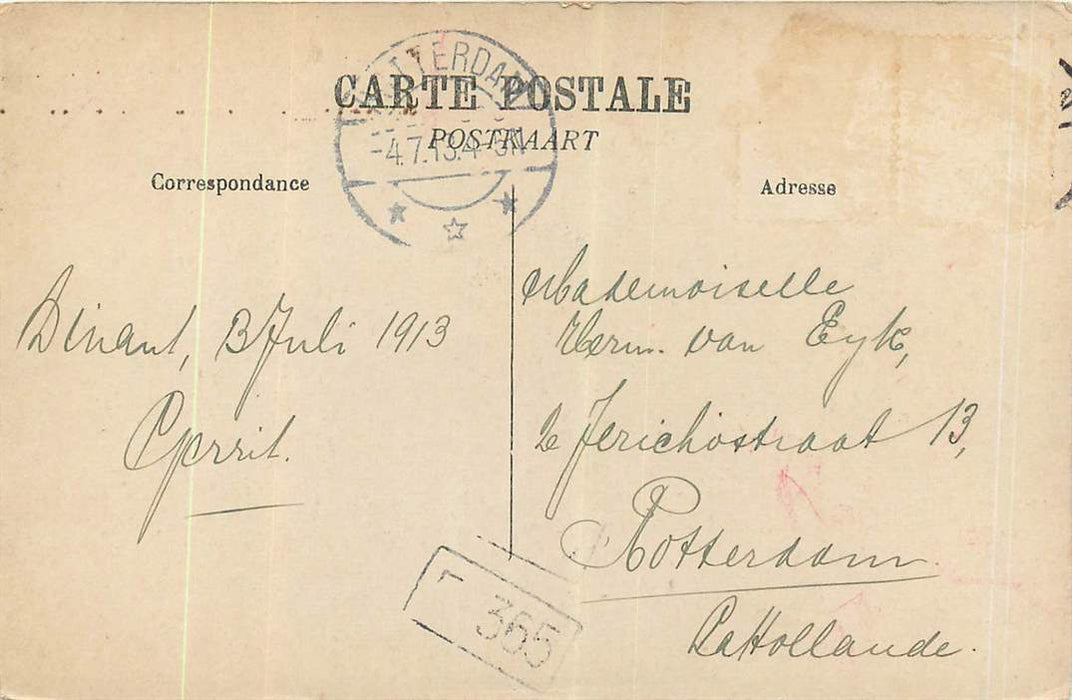 CARTE POSTALE
POSTKAART
ROTTERDAM
-4.7.13.4-5N
Correspondance
Adresse
Dinant, 3 Juli 1913
Gerrit.
Mademoiselle
Herm. van Eyk,
2e Jerichostraat 13,
Rotterdam
La Hollande.
365